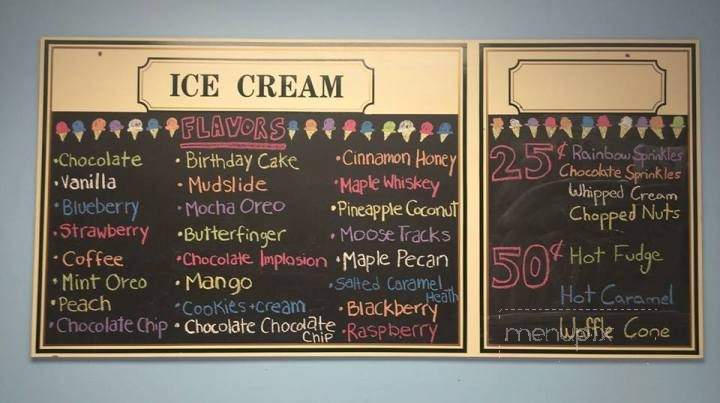 ICE CREAM
FLAVORS
•Chocolate
•Vanilla
•Blueberry
•Strawberry
•Coffee
•Mint Oreo
•Peach
•Chocolate Chip
•Birthday Cake
•Mudslide
•Mocha Oreo
•Butterfinger
•Chocolate Implosion
•Mango
•Cookies+cream
•Chocolate Chocolate
Chip
•Cinnamon Honey
•Maple Whiskey
•Pineapple Coconut
•Moose Tracks
•Maple Pecan
•Salted Caramel
Heath
•Blackberry
•Raspberry
25¢ Rainbow Sprinkles
Chocolate Sprinkles
Whipped Cream
Chopped Nuts
50¢ Hot Fudge
Hot Caramel
Waffle Cone
menupix